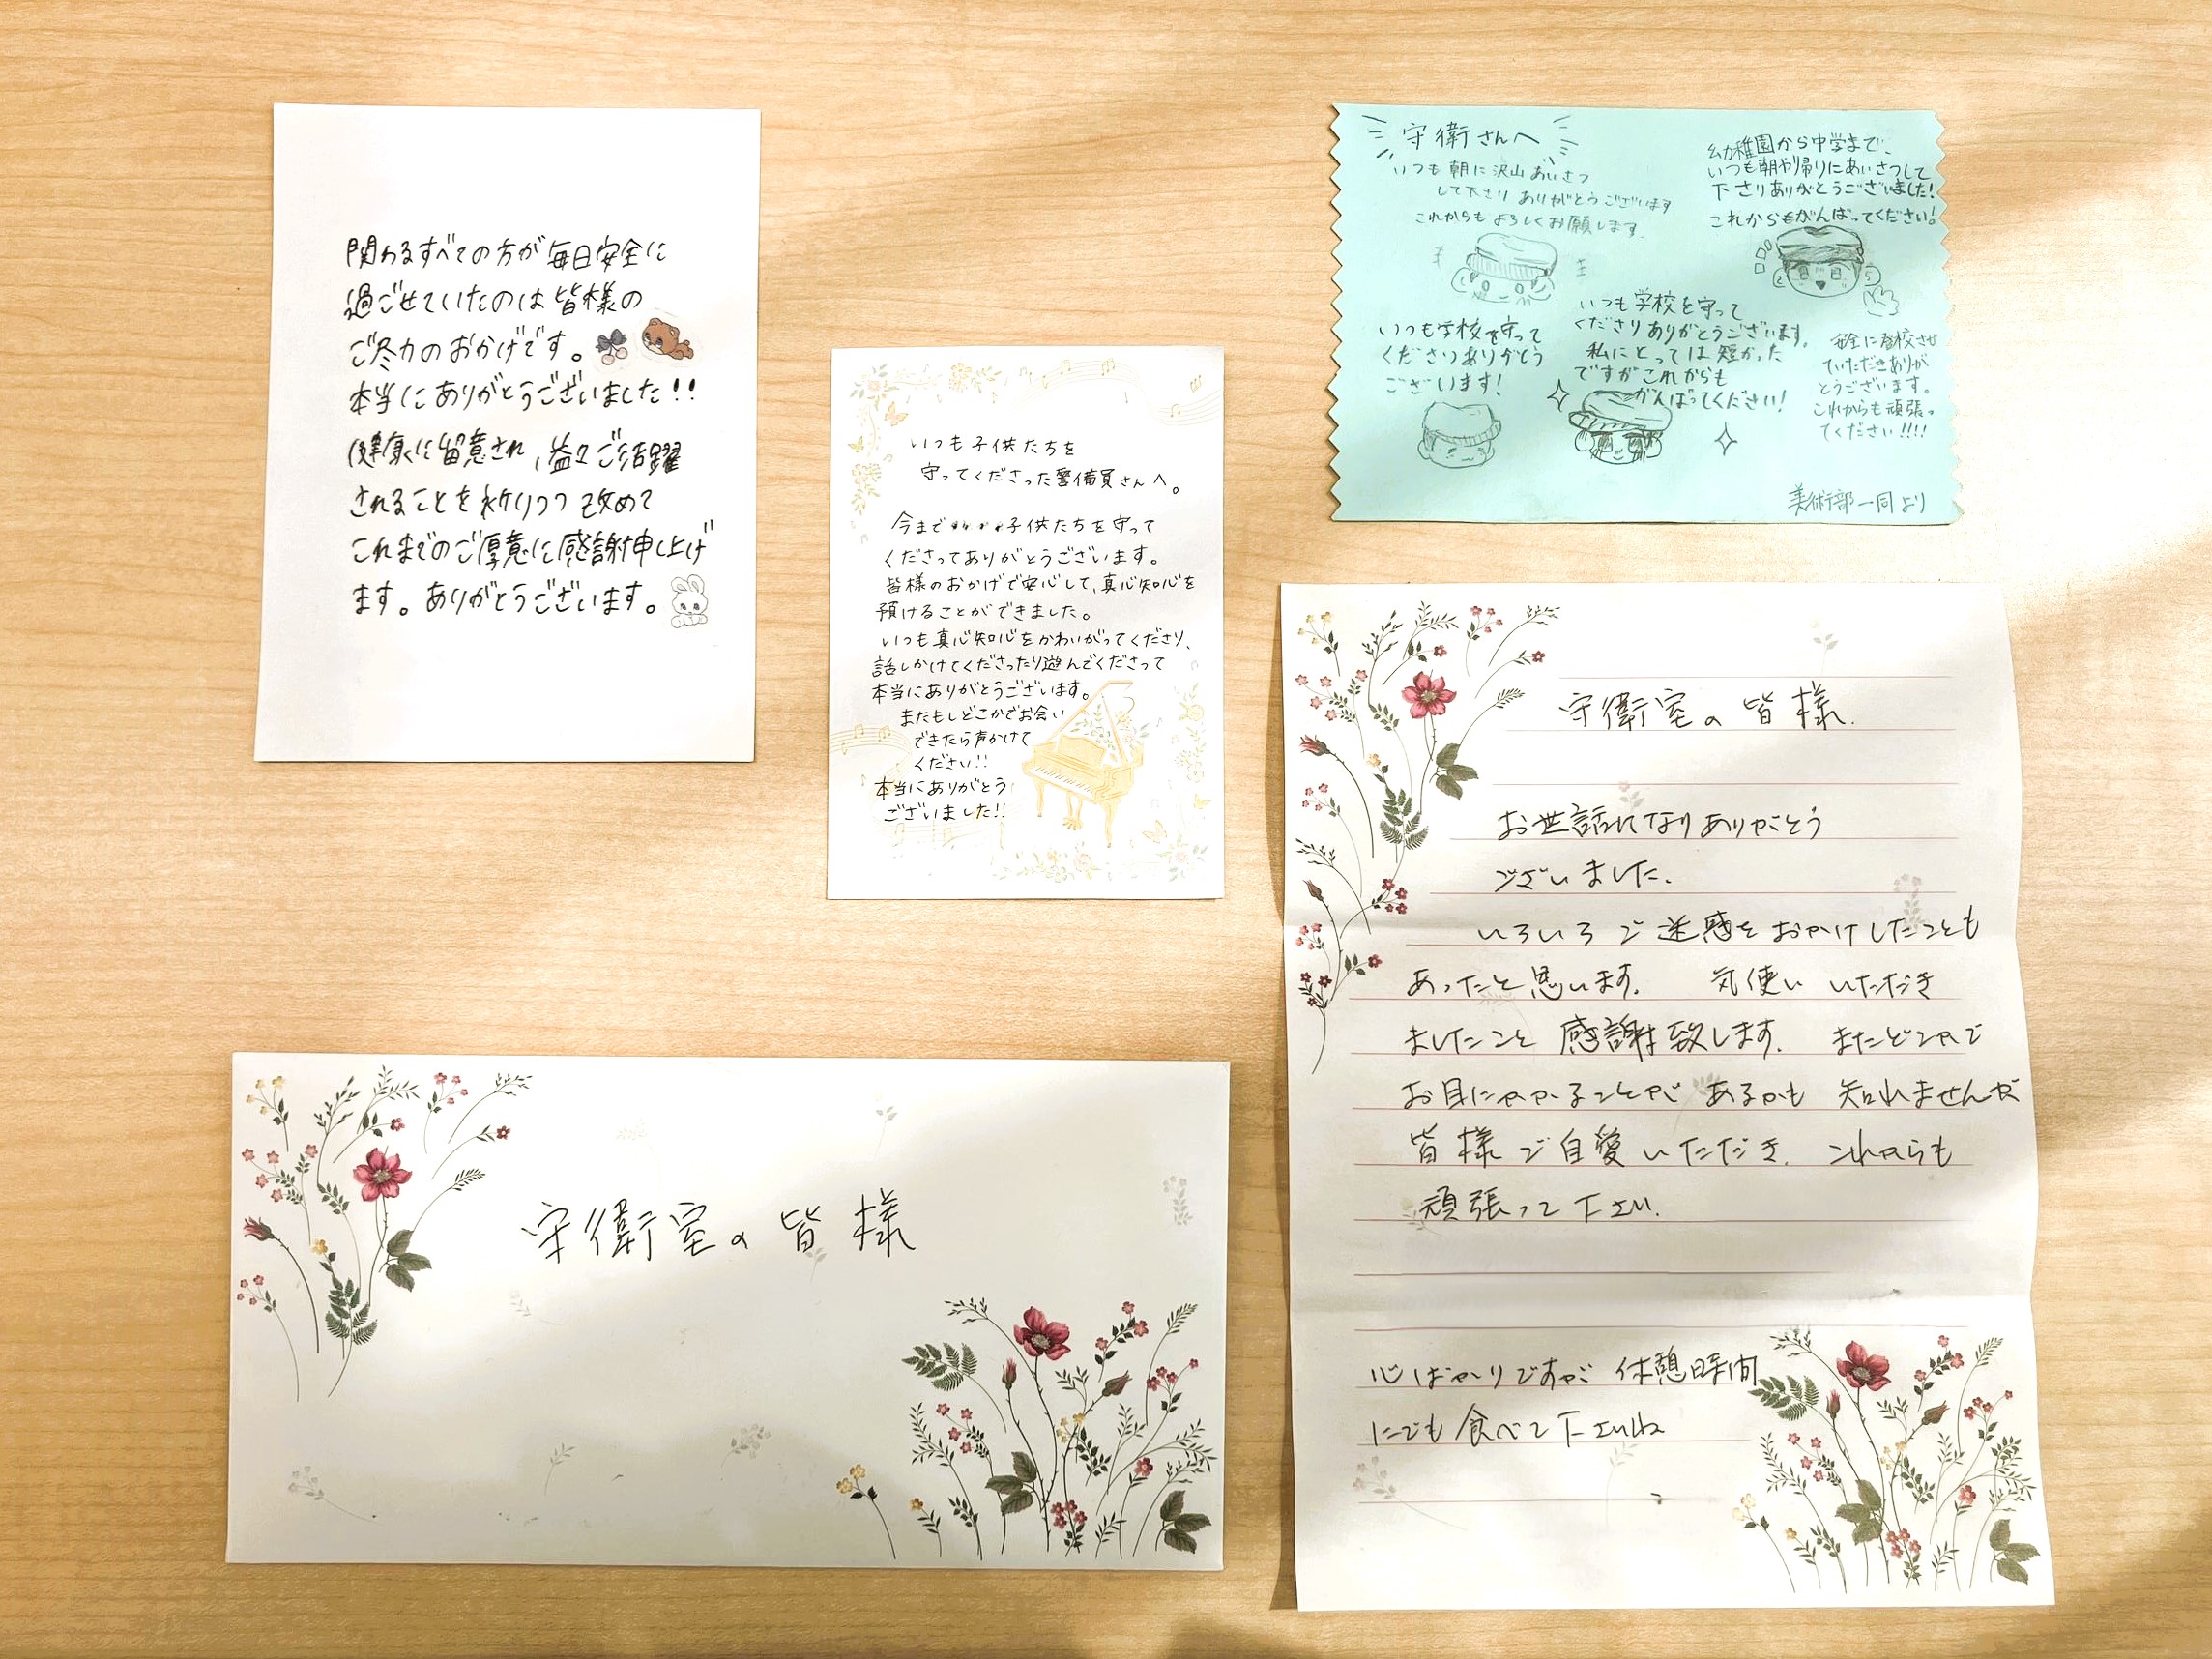 関わるすべての方が毎日安全に
過ごせていたのは皆様の
ご尽力のおかげです。
本当にありがとうございました!!
健康に留意され、益々ご活躍
されることを祈りつつ改めて
これまでのご厚意に感謝申し上げ
ます。ありがとうございます。
いつも子供たちを
守ってくださった警備員さんへ。
今まで子供たちを守って
くださってありがとうございます。
皆様のおかげで安心して、真心知心を
預けることができました。
いつも真心知心をかわいがってくださり、
話しかけてくださったり遊んでくださって
本当にありがとうございます。
またもしどこかでお会い
できたら声かけて
ください!!
本当にありがとう
ございました!!
守衛さんへ
いつも朝に沢山あいさつ
して下さり ありがとうございます
これからもよろしくお願します。
幼稚園から中学まで、
いつも朝や帰りにあいさつして
下さりありがとうございました!
これからもがんばってください!
いつも学校を守って
くださりありがとう
ございます!
いつも学校を守って
くださりありがとうございます。
私にとっては短かった
ですがこれからも
がんばってください!
安全に登校させ
ていただきありが
とうございます。
これからも頑張っ
てください!!!!
美術部一同より
守衛室の皆様
守衛室の皆様.
お世話になりありがとう
ございました.
いろいろご迷惑をおかけしたことも
あったと思います. 気使いいただき
ましたこと感謝致します. またどこかで
お目にかかることがあるかも知れませんが
皆様ご自愛いただき. これからも
頑張って下さい.
心ばかりですが休憩時間
にでも食べて下さいね